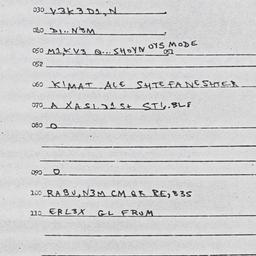 030 V3K3D1,N
040 D1..N3M
050 M1KV3 Q...SHOYN OYS MODE
052
060 KIMAT ALE SHTEFANESHTER
070 A XASI21St STIL.BLE
080 O
090 O
100 RABU,N3M CM QR BE,835
110 ERL3X GL FRUM